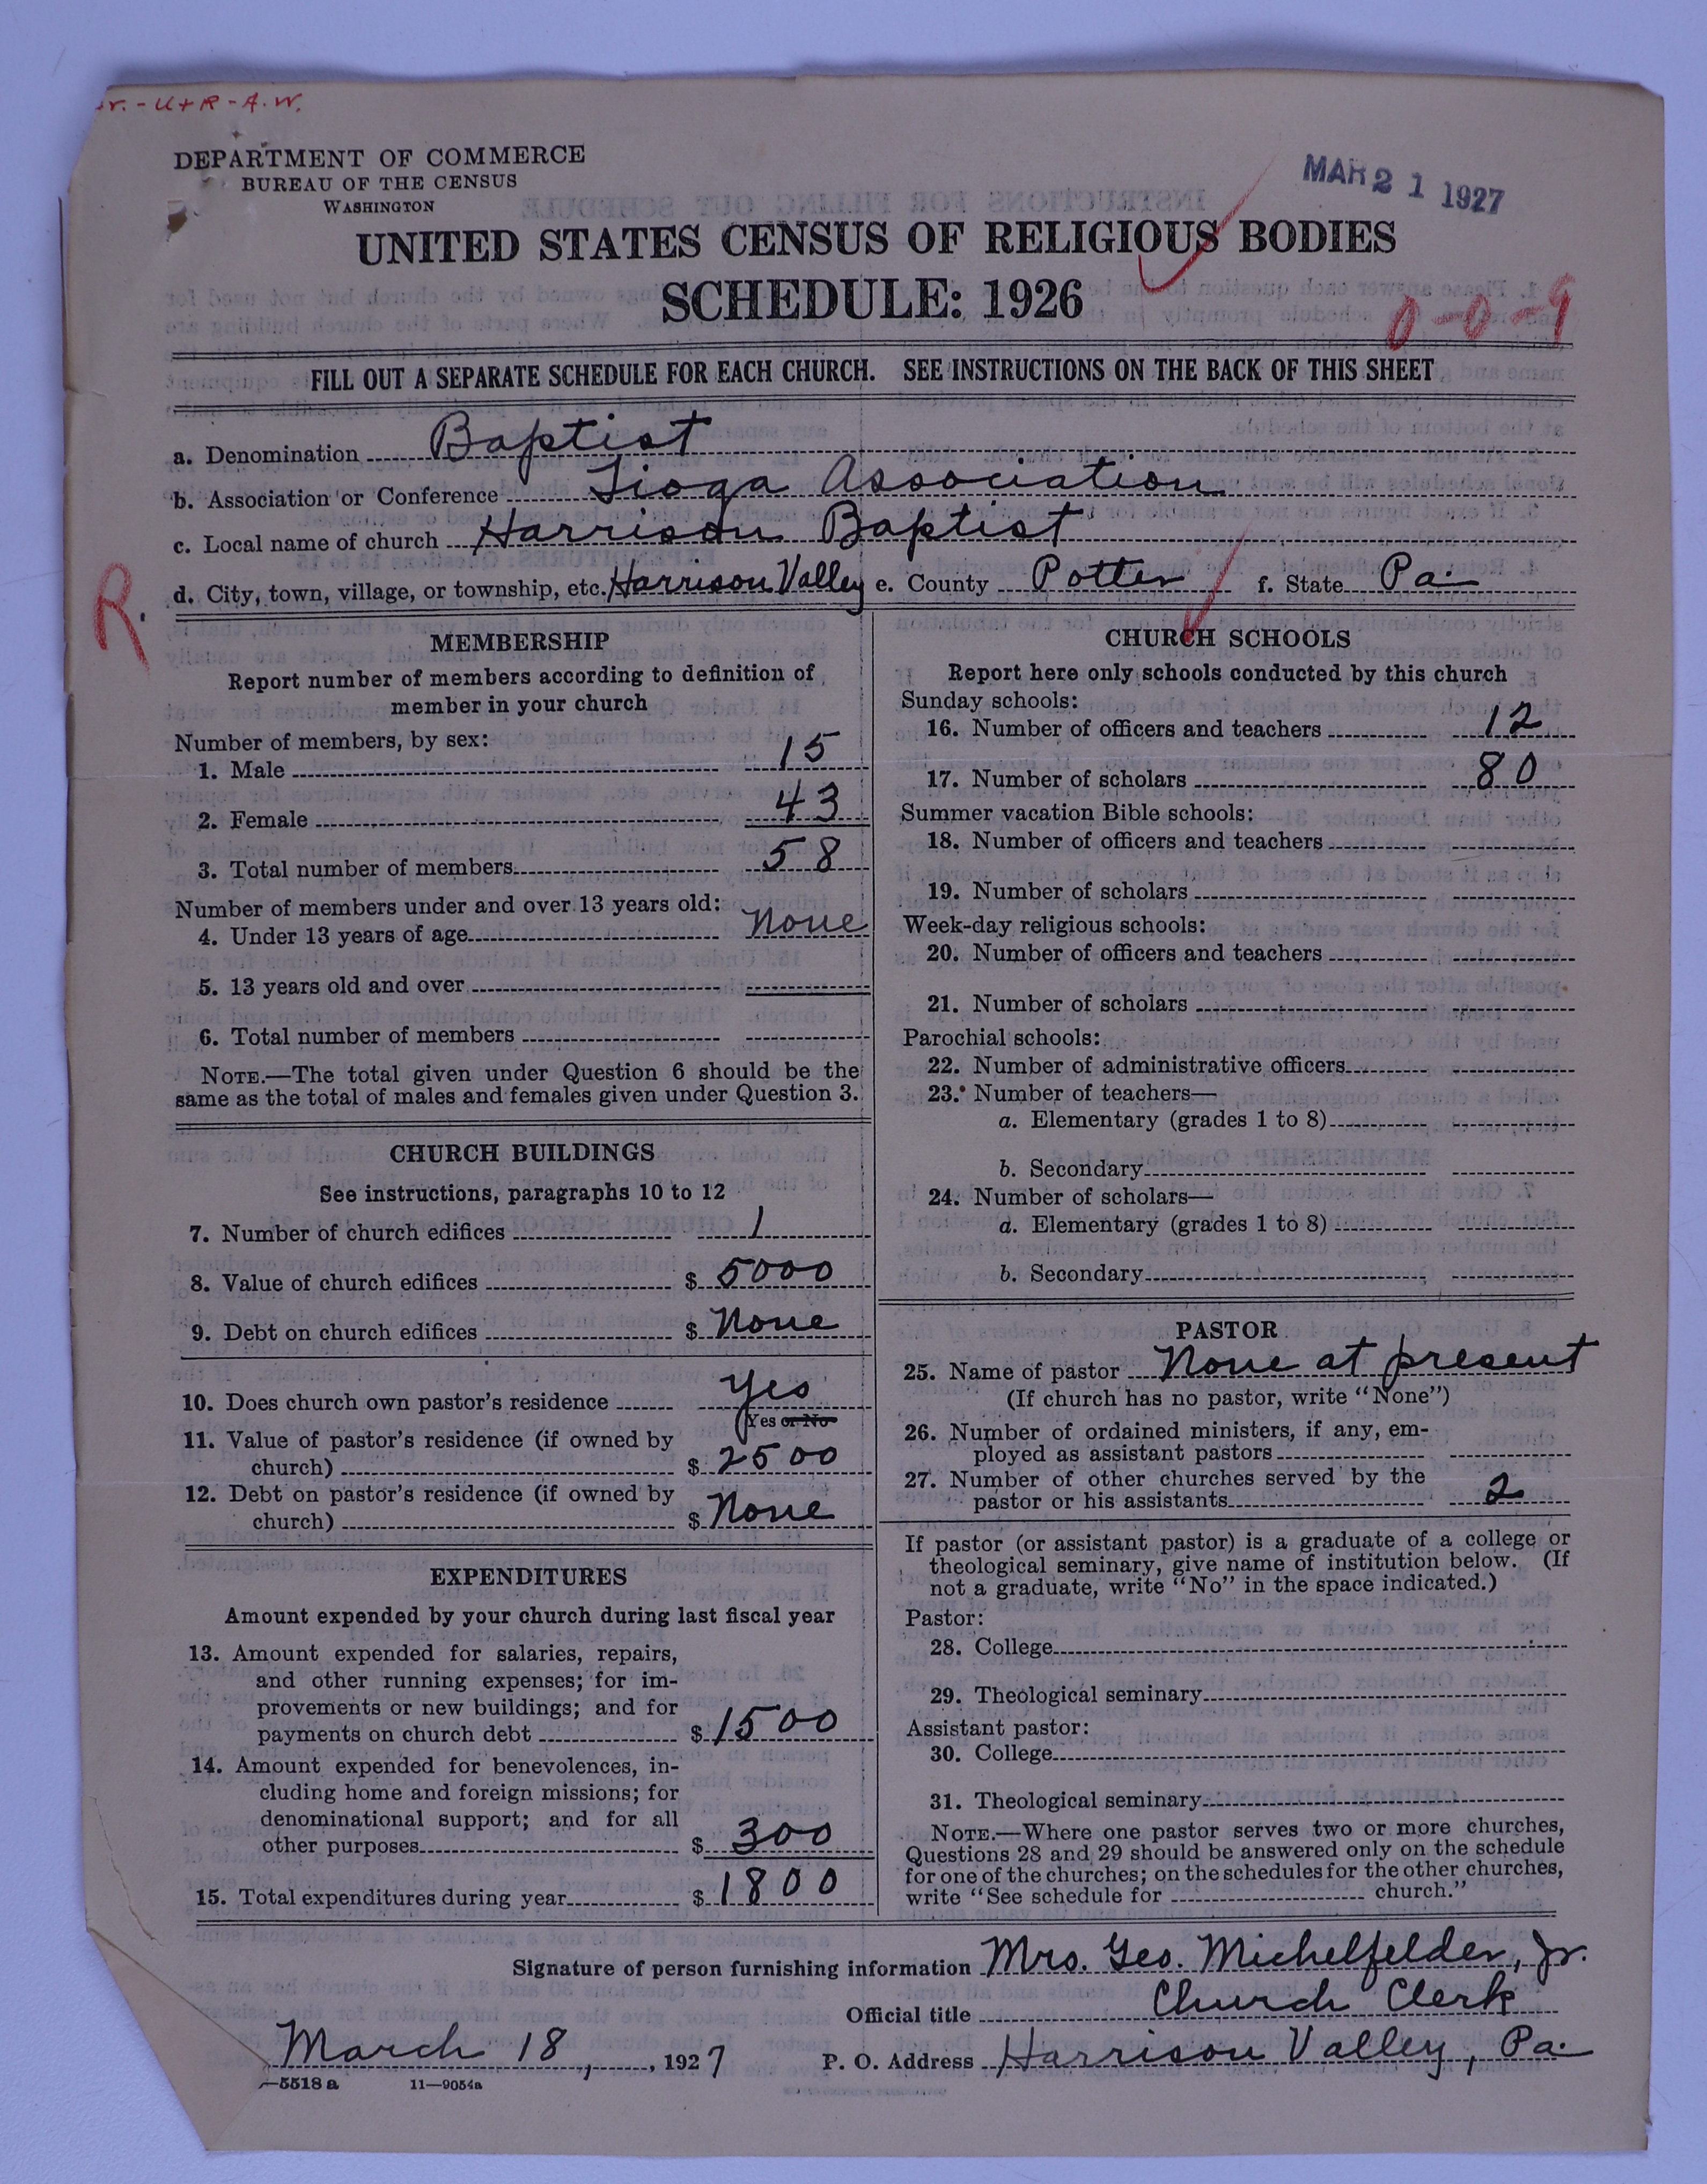 U+R-A.W.
DEPARTMENT OF COMMERCE
BUREAU OF THE CENSUS
WASHINGTON
MAR 21 1927
UNITED STATES CENSUS OF RELIGIOUS BODIES
SCHEDULE: 1926
0-0-9
FILL OUT A SEPARATE SCHEDULE FOR EACH CHURCH. SEE INSTRUCTIONS ON THE BACK OF THIS SHEET
a. Denomination Baptist
b. Association or Conference Tioga Association
c. Local name of church Harrison Baptist
d. City, town, village, or township, etc. Harrison Valley e. County Potter f. State Pa.
R.
MEMBERSHIP
Report number of members according to definition of
member in your church
Number of members, by sex:
1. Male 15
2. Female 43
3. Total number of members 58
Number of members under and over 13 years old:
4. Under 13 years of age None
5. 13 years old and over
6. Total number of members
NOTE.—The total given under Question 6 should be the
same as the total of males and females given under Question 3.
CHURCH BUILDINGS
See instructions, paragraphs 10 to 12
7. Number of church edifices 1
8. Value of church edifices $ 5000
9. Debt on church edifices $ None
10. Does church own pastor's residence Yes
Yes or No
11. Value of pastor's residence (if owned by
church) $ 2500
12. Debt on pastor's residence (if owned by
church) $ None
EXPENDITURES
Amount expended by your church during last fiscal year
13. Amount expended for salaries, repairs,
and other running expenses; for im-
provements or new buildings; and for
payments on church debt $ 1500
14. Amount expended for benevolences, in-
cluding home and foreign missions; for
denominational support; and for all
other purposes $ 300
15. Total expenditures during year $ 1800
CHURCH SCHOOLS
Report here only schools conducted by this church
Sunday schools:
16. Number of officers and teachers 12
17. Number of scholars 80
Summer vacation Bible schools:
18. Number of officers and teachers
19. Number of scholars
Week-day religious schools:
20. Number of officers and teachers
21. Number of scholars
Parochial schools:
22. Number of administrative officers
23. Number of teachers—
a. Elementary (grades 1 to 8)
b. Secondary
24. Number of scholars—
a. Elementary (grades 1 to 8)
b. Secondary
PASTOR
25. Name of pastor None at present
(If church has no pastor, write "None")
26. Number of ordained ministers, if any, em-
ployed as assistant pastors
27. Number of other churches served by the
pastor or his assistants 2
If pastor (or assistant pastor) is a graduate of a college or
theological seminary, give name of institution below. (If
not a graduate, write "No" in the space indicated.)
Pastor:
28. College
29. Theological seminary
Assistant pastor:
30. College
31. Theological seminary
NOTE.—Where one pastor serves two or more churches,
Questions 28 and 29 should be answered only on the schedule
for one of the churches; on the schedules for the other churches,
write "See schedule for church."
Signature of person furnishing information Mrs. Geo. Michelfelder, Jr.
Official title Church Clerk
March 18, , 1927 P. O. Address Harrison Valley, Pa.
—5518 a 11—9054a